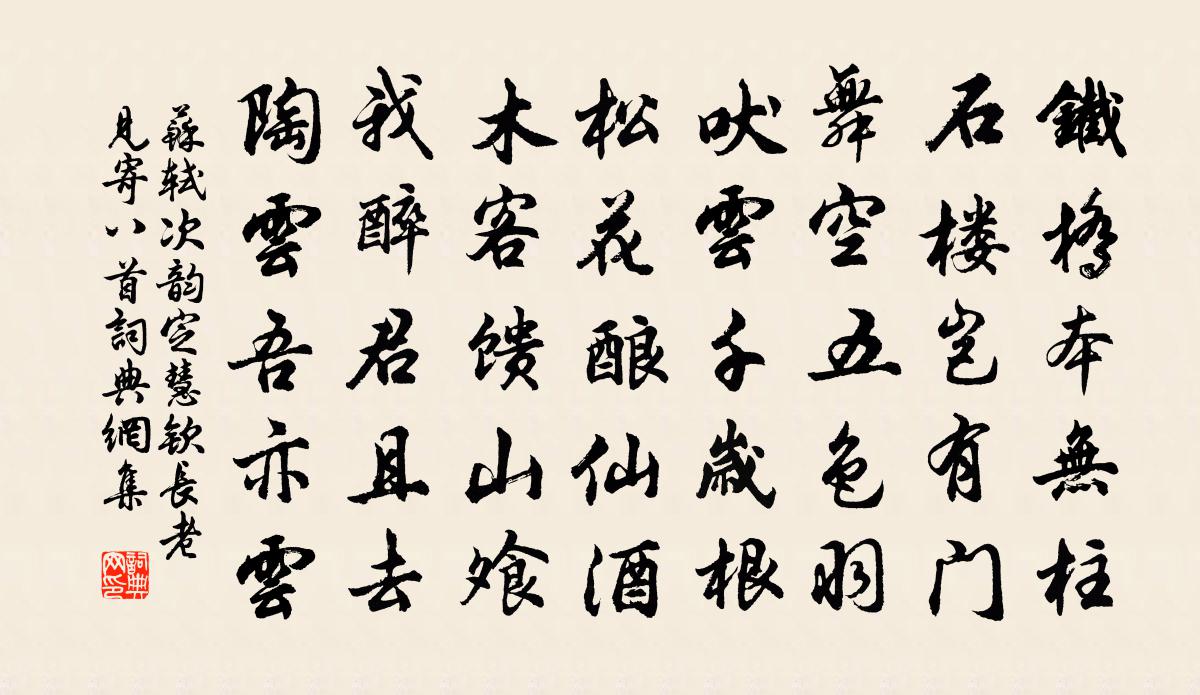 鐵橋本無柱
石楼岂有门
舞空五色羽
吠雲千歲根
松花酿仙酒
木客馈山飧
我醉君且去
陶雲吾亦雲
蘇軾次韵定慧欽長老
見寄八首詞典網集
詞典网印